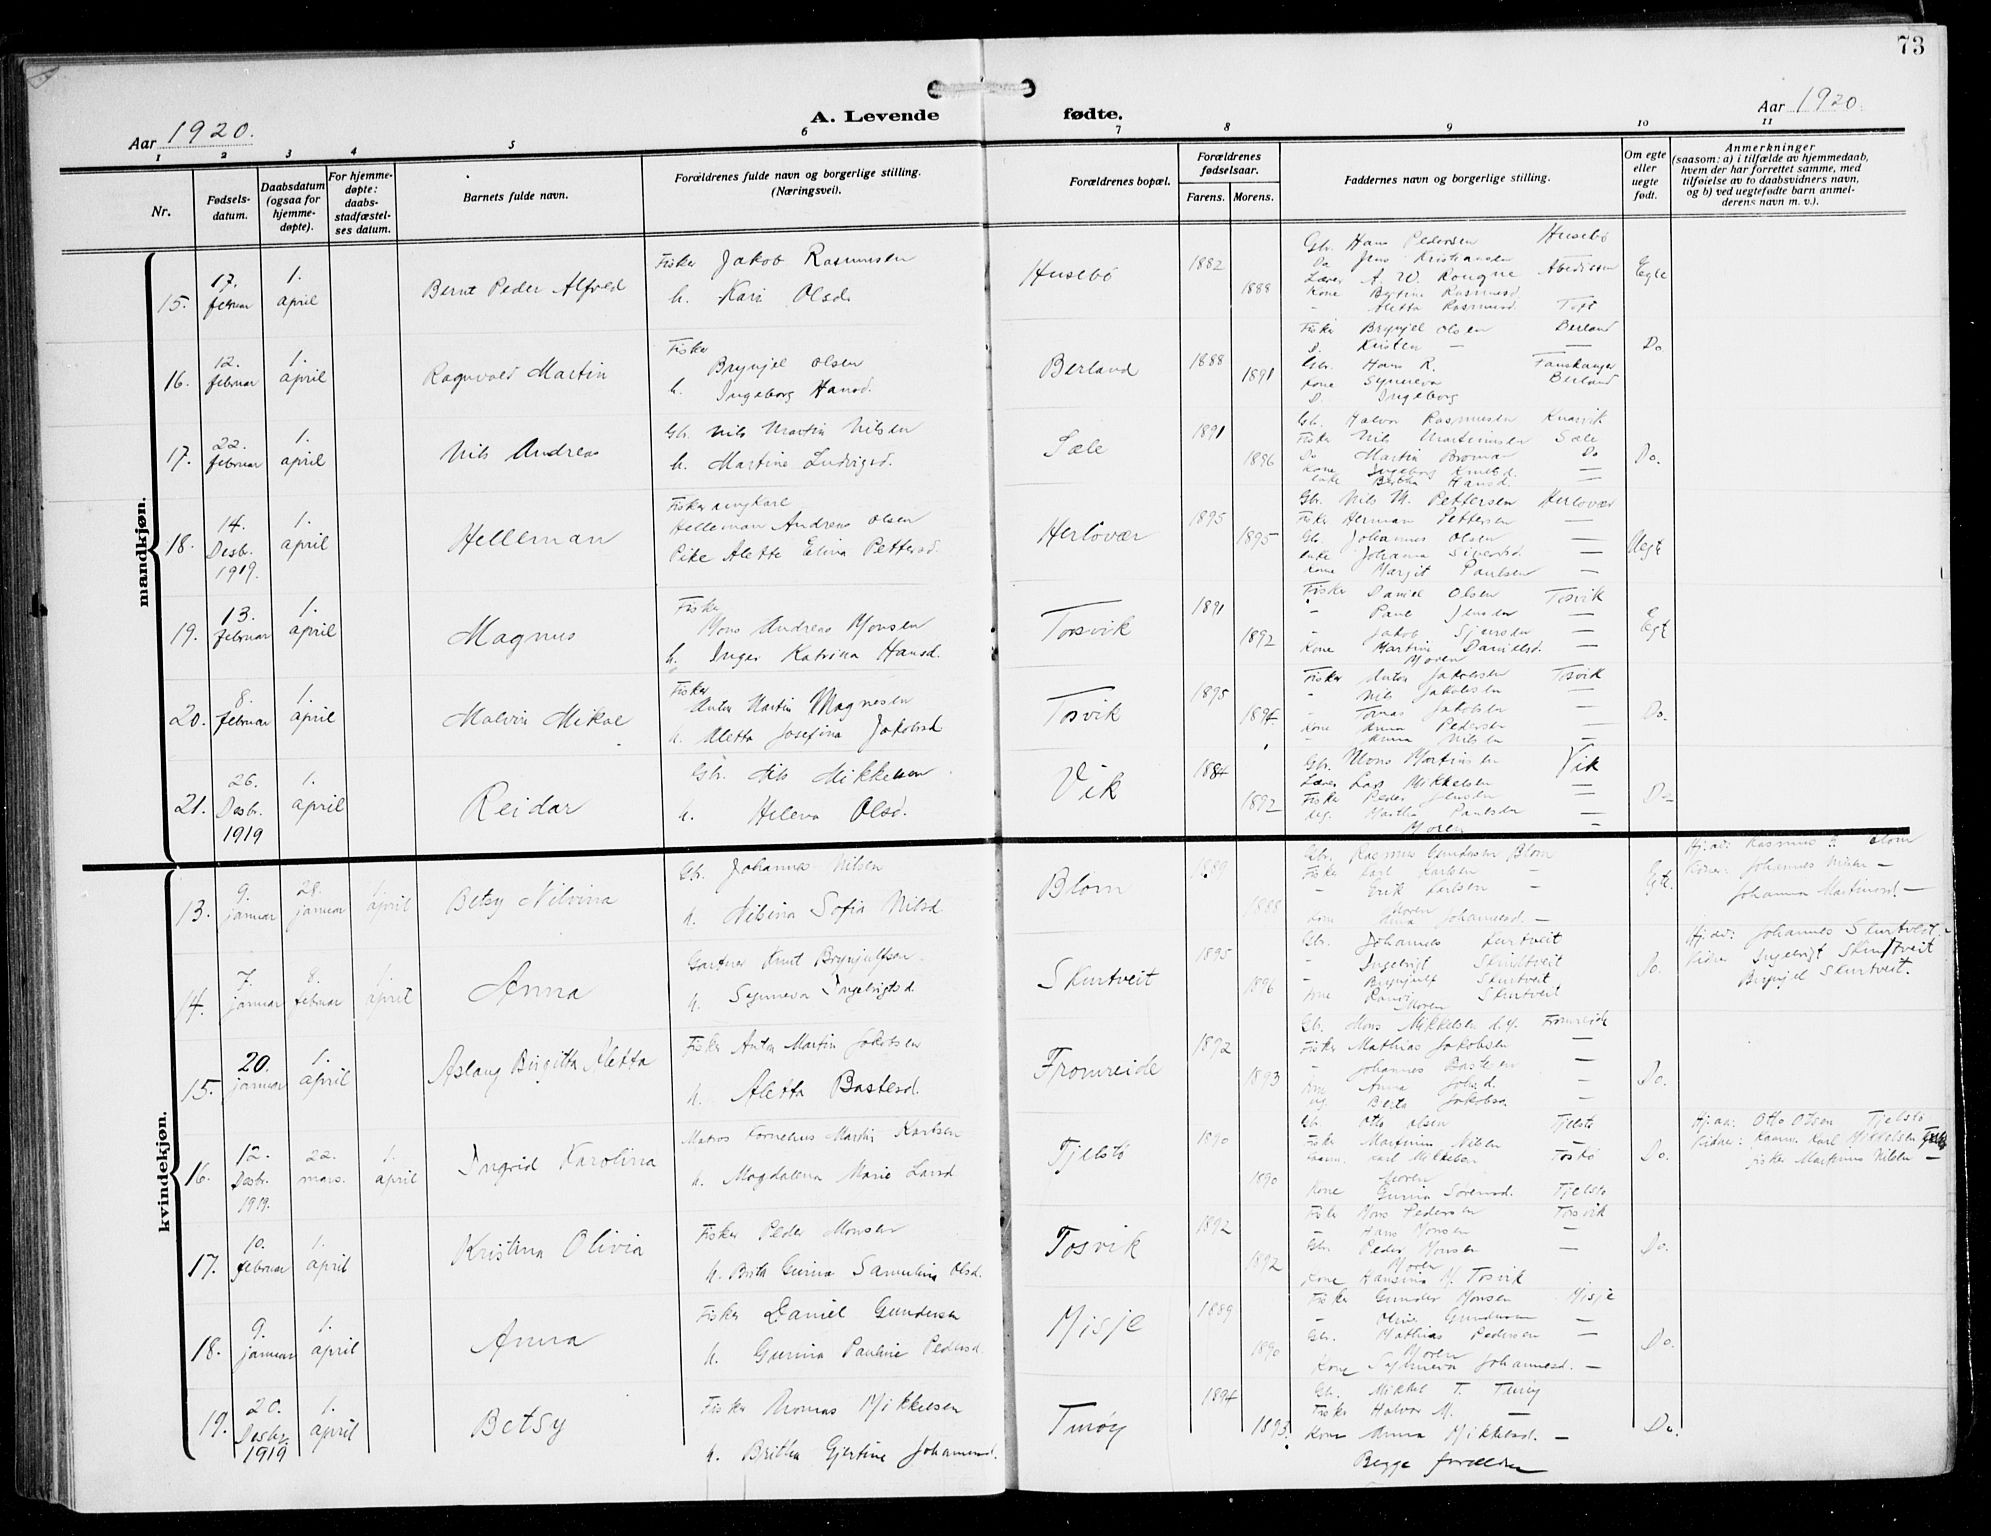 73
Aar 1920.
A. Levende fødte.
Aar 1920.
1 2 3 4 5 6 7 8 9 10 11
Nr.
Fødsels-
datum.
Daabsdatum
(ogsaa for
hjemme-
døpte).
For hjemme-
døpte:
daabs-
stadfæstel-
ses datum.
Barnets fulde navn.
Forældrenes fulde navn og borgerlige stilling.
(Næringsvei).
Forældrenes bopæl.
Forældrenes
fødselsaar.
Farens. Morens.
Faddernes navn og borgerlige stilling.
Om egte
eller
uegte
født.
Anmerkninger
(saasom: a) i tilfælde av hjemmedaab,
hvem der har forrettet samme, med
tilføielse av to daabsvidners navn,
og b) ved uegtefødte barn anmel-
derens navn m. v.).
mandkjøn.
15. 17. februar 1. april
Bernt Peder Alfred
Fisker Jakob Rasmussen
h. Kari Olsd.
Husebø 1882 1888
Gbr. Hans Pedersen Husebø
Do Jens Kristiansen
Lærer A. W.
Kone Rasmusd.
Aletta Rasmusd. Toft
Egte
16. 12. februar 1. april
Ragnvald Martin
Fisker
Brynjel Olsen
h. Ingeborg Hansd.
Berland 1888 1891
Fisker Brynjel Olsen Berland
D. Kristen — —
Gbr. Hans R.
Kone Synneva Berland
D. Ingeborg
Do
17. 22. februar 1. april
Nils Andreas
Gbr. Nils Martin Nilsen
h. Martine Ludvigsd.
Sæle 1891 1896
Gbr. Halvor Rasmussen
Fisker Nils Martinussen Sæle
Do Martin Do
Kone Ingeborg —
Enke Hansd. —
Do.
18. 14. Desbr. 1919. 1. april
Helleman
Fisker ungkarl
Helleman Andreas Olsen
Pike Alette Elina Pettersd.
Herløvær 1895 1895
Gbr. Nils M. Pettersen Herløvær
Fisker Herman Pettersen —
Gb. Johannes Olsen —
Enke Johanna Sivertsd. —
Kone Margit Paulsen —
Uegte
19. 13. februar 1. april
Magnus
Fisker
Mons Andreas Monsen
h. Inger Katrina Hansd.
Torsvik 1891 1892
Fisker Daniel Olsen Tosvik
" Paul Jensen —
" Jakob —
Kone Martine Danielsd. —
Moren
Egt
20. 8. februar 1. april
Malvin Mikal
Fisker
Anton Martin Magnesen
h. Aletta Josefina Jakobsd
Tosvik 1895 1894.
Fisker Anton Jakobsen Tosvik
" Nils Jakobsen —
" Tomas Jakobsen —
Kone Anna Pedersen —
" Anna Nilsen —
Do.
21. 26. Desbr. 1919 1. april
Reidar
Gbr. Nils Mikkelsen
h. Helena Olsd.
Vik 1884 1892
Gbr. Mons Martinsen Vik
Lærer Lars Mikkelsen —
Fisker Peder Jensen —
ug. Martha Paulsen —
Moren —
Do
kvindekjøn.
13. 9. januar 28. januar 1. april
Betsy Nilvina
Gb. Johannes Nilsen
h. Nilsina Sofia Nilsd
Blom 1889 1888
Gbr. Rasmus Gundersen Blom
Fisker Karl Karlsen —
" Erik Karlsen —
Moren
Kone Anna Johannesd. —
Egte.
Hj.døt: Rasmus Blom
Vidner: Johannes Nilsen —
Johanna Martinusd. —
14. 7. januar 8. februar 1. april
Anna
Gartner Knut Brynjulfsen
h. Synneva Ingebrigtsd.
Skurtveit 1895 1896
Gbr. Johannes Skurtveit
" Ingebrigt Skurtveit
" Brynjulf Skurtveit
Kone Skurtveit
Moren
Do.
Hj.døt: Johannes Skurtveit.
Vidner Ingebrigt Skurtveit
Brynjel Skurtveit.
15. 20. januar 1. april
Aslaug Birgitta Aletta
Fisker Anton Martin Jakobsen
h. Aletta Bastesd.
Fromreide 1892 1893
Gb. Mons Mikkelsen d.y. Fromreide
Fisker Mathias Jakobsen —
" Johannes Bastesen —
Kone Anna Joh.d. —
ug. Berta Jakobsd. —
Do.
16. 12. Desbr. 1919. 22. mars. 1. april
Ingrid Karolina
Matros Kornelius Martin Karlsen
h. Magdalena Marie Larsd
Tjelstø 1890 1890
Gb. Otto Olsen Tjelstø
Fisker Martinus Nilsen —
Karl Mikkelsen
Moren
Kone Gurina Sørensd. Tjelstø
Do.
Hj.døt: Otto Olsen Tjelstø
Vidner: Karl Mikkelsen
fisker Martinus Nilsen —
17. 10. februar 1. april
Kristina Olivia
Fisker Peder Monsen
h. Brita Gurina Samulina Olsd.
Tosvik 1892 1892
Fisker Mons Pedersen Tosvik
" Hans Monsen —
Gbr. Peder Monsen —
Moren
Kone Hansina M. Tosvik
Do.
18. 9. januar 1. april
Anna
Fisker Daniel Gundersen
h. Gurina Pauline Pedersd.
Misje 1889 1890
Fisker Gunder Monsen Misje
" Oliver Gundersen —
Gbr. Mathias Pedersen —
Moren
Kone Synneva Johannesd. —
Do.
19. 20. Desbr. 1919 1. april
Betsy
Fisker Thomas Mikkelsen
h. Britha Gjertine Johannesd.
Turøy 1894 1893.
Gb. Mikkel T. Turøy
Fisker Halvor M. —
Kone Anna Mikkelsd. —
Begge forældre
Do.